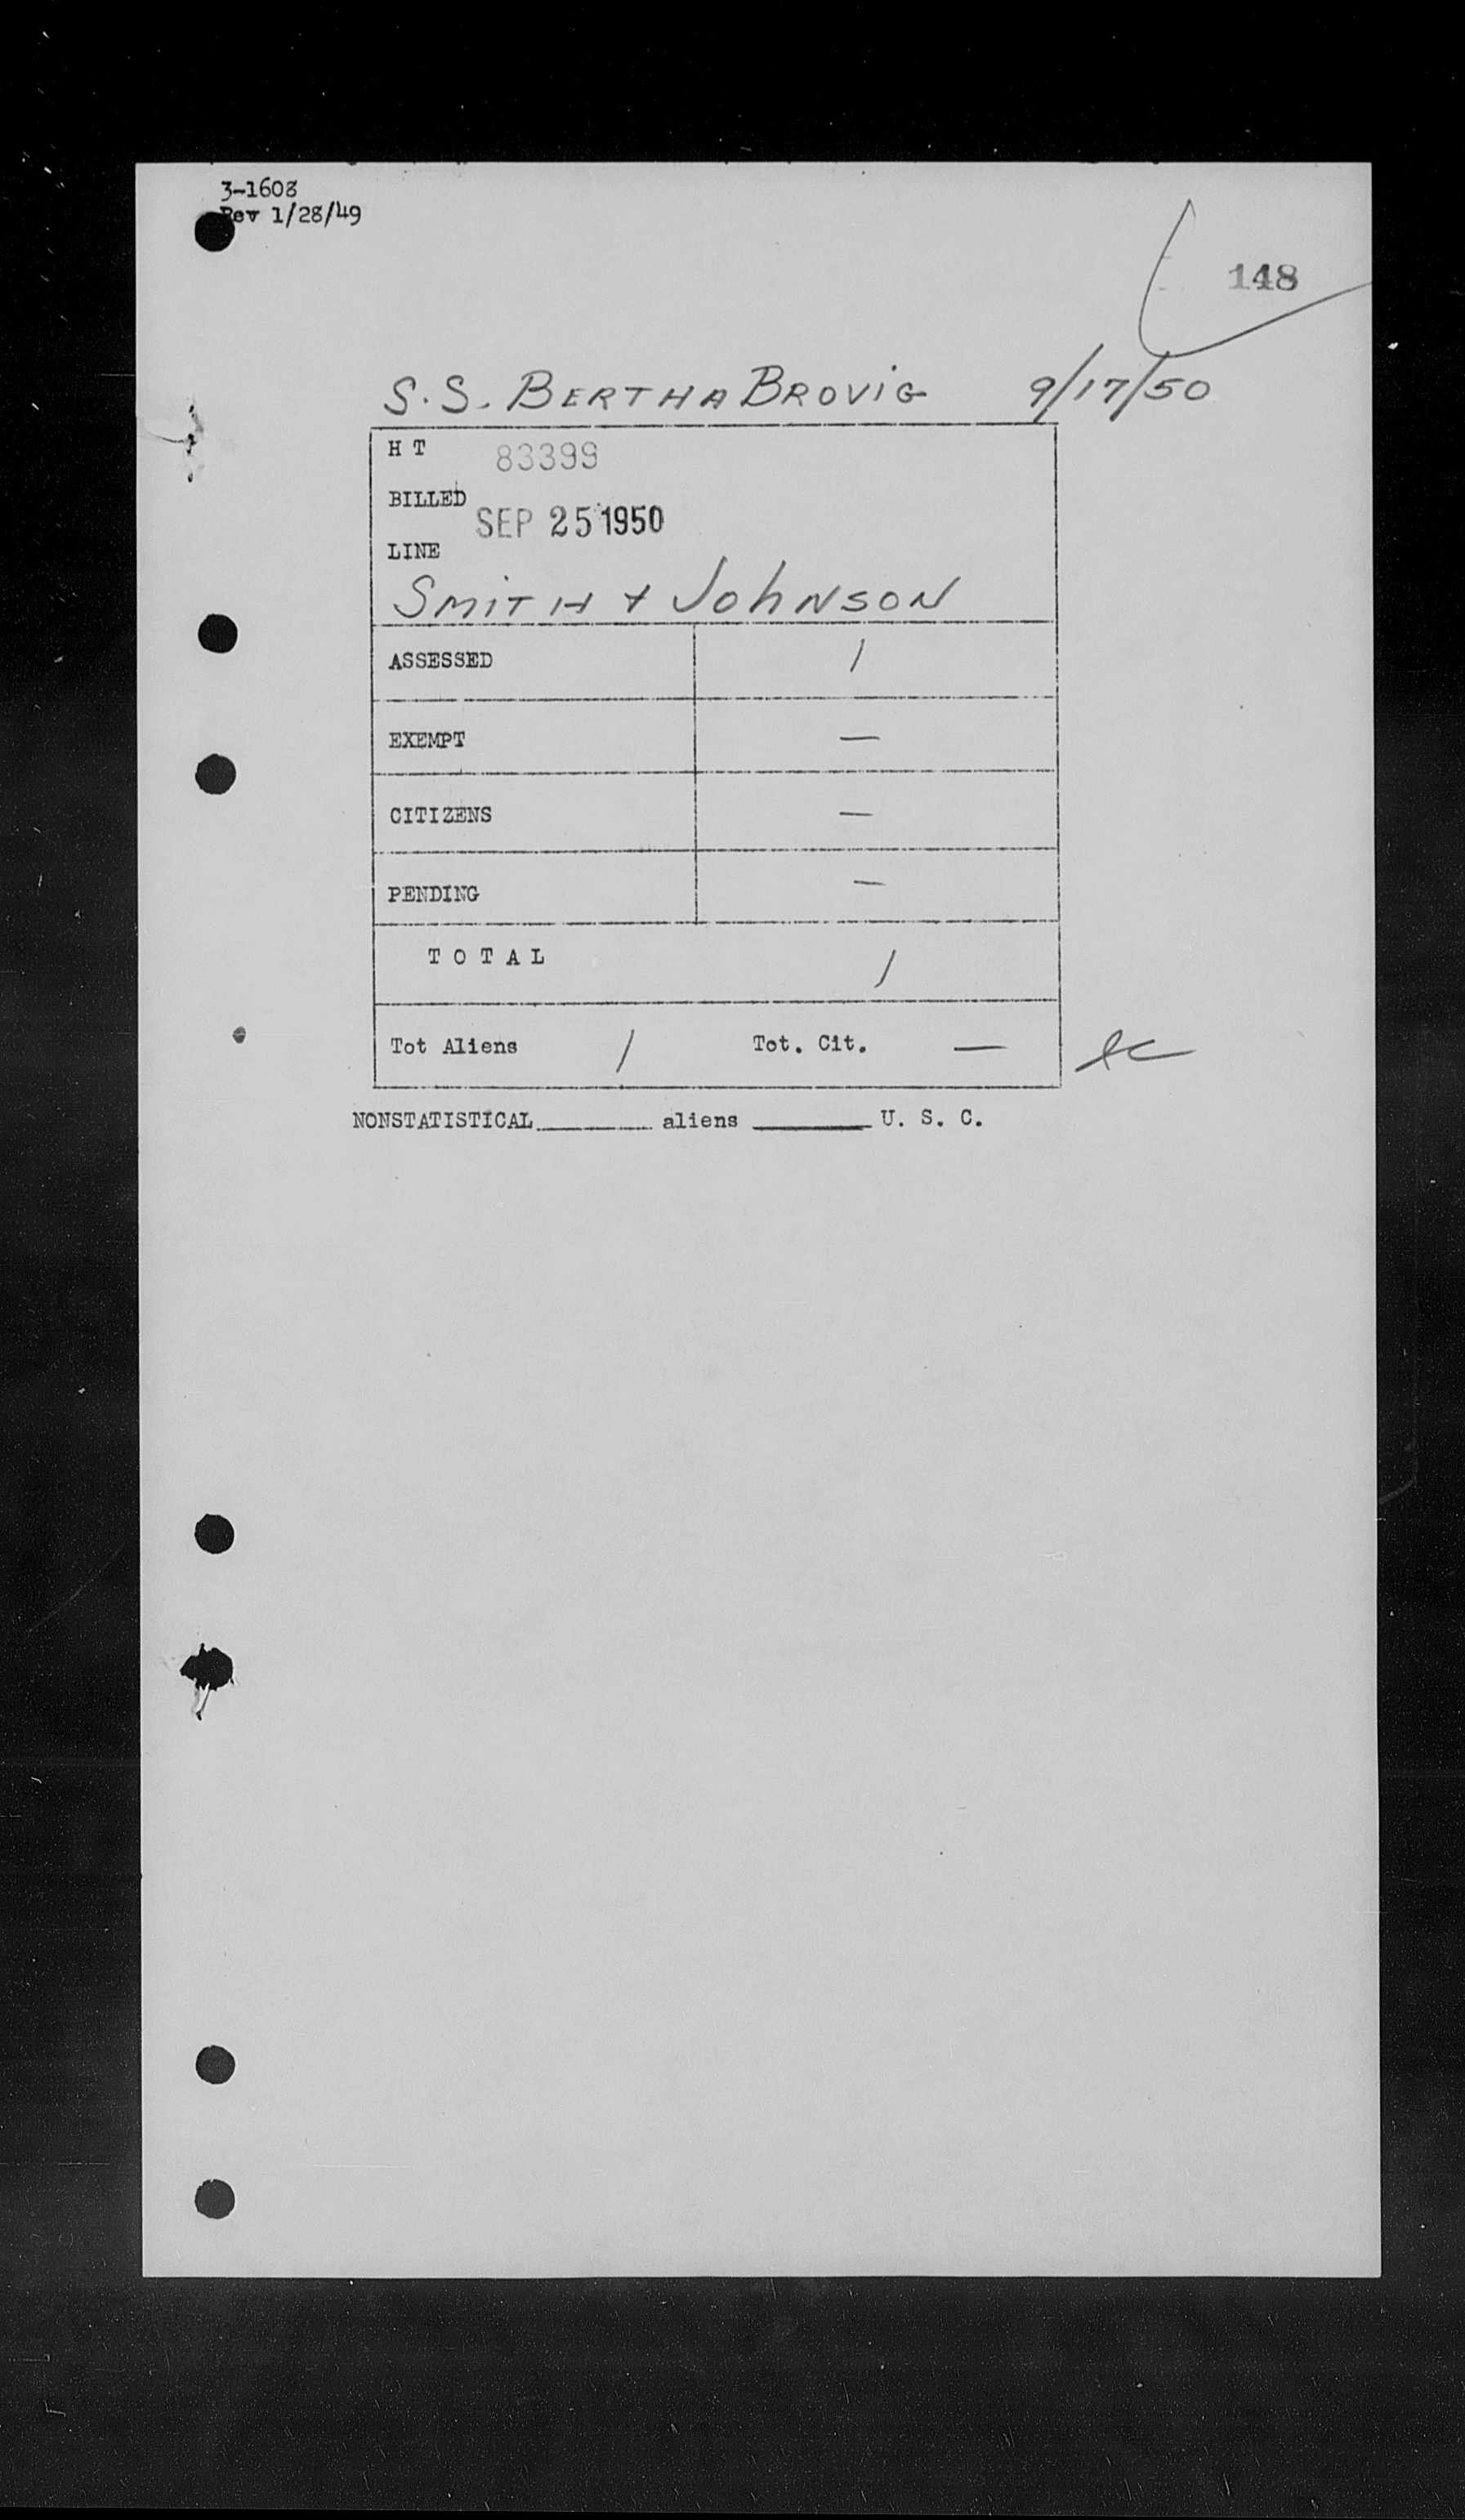 3-1608
Rev 1/28/49
148
S.S. BERTHA BROVIG 9/17/50
H T 83399
BILLED
SEP 25 1950
LINE
SMITH + JOHNSON
ASSESSED 1
EXEMPT —
CITIZENS —
PENDING —
T O T A L 1
Tot Aliens 1 Tot. Cit. —
NONSTATISTICAL______ aliens ______ U. S. C.